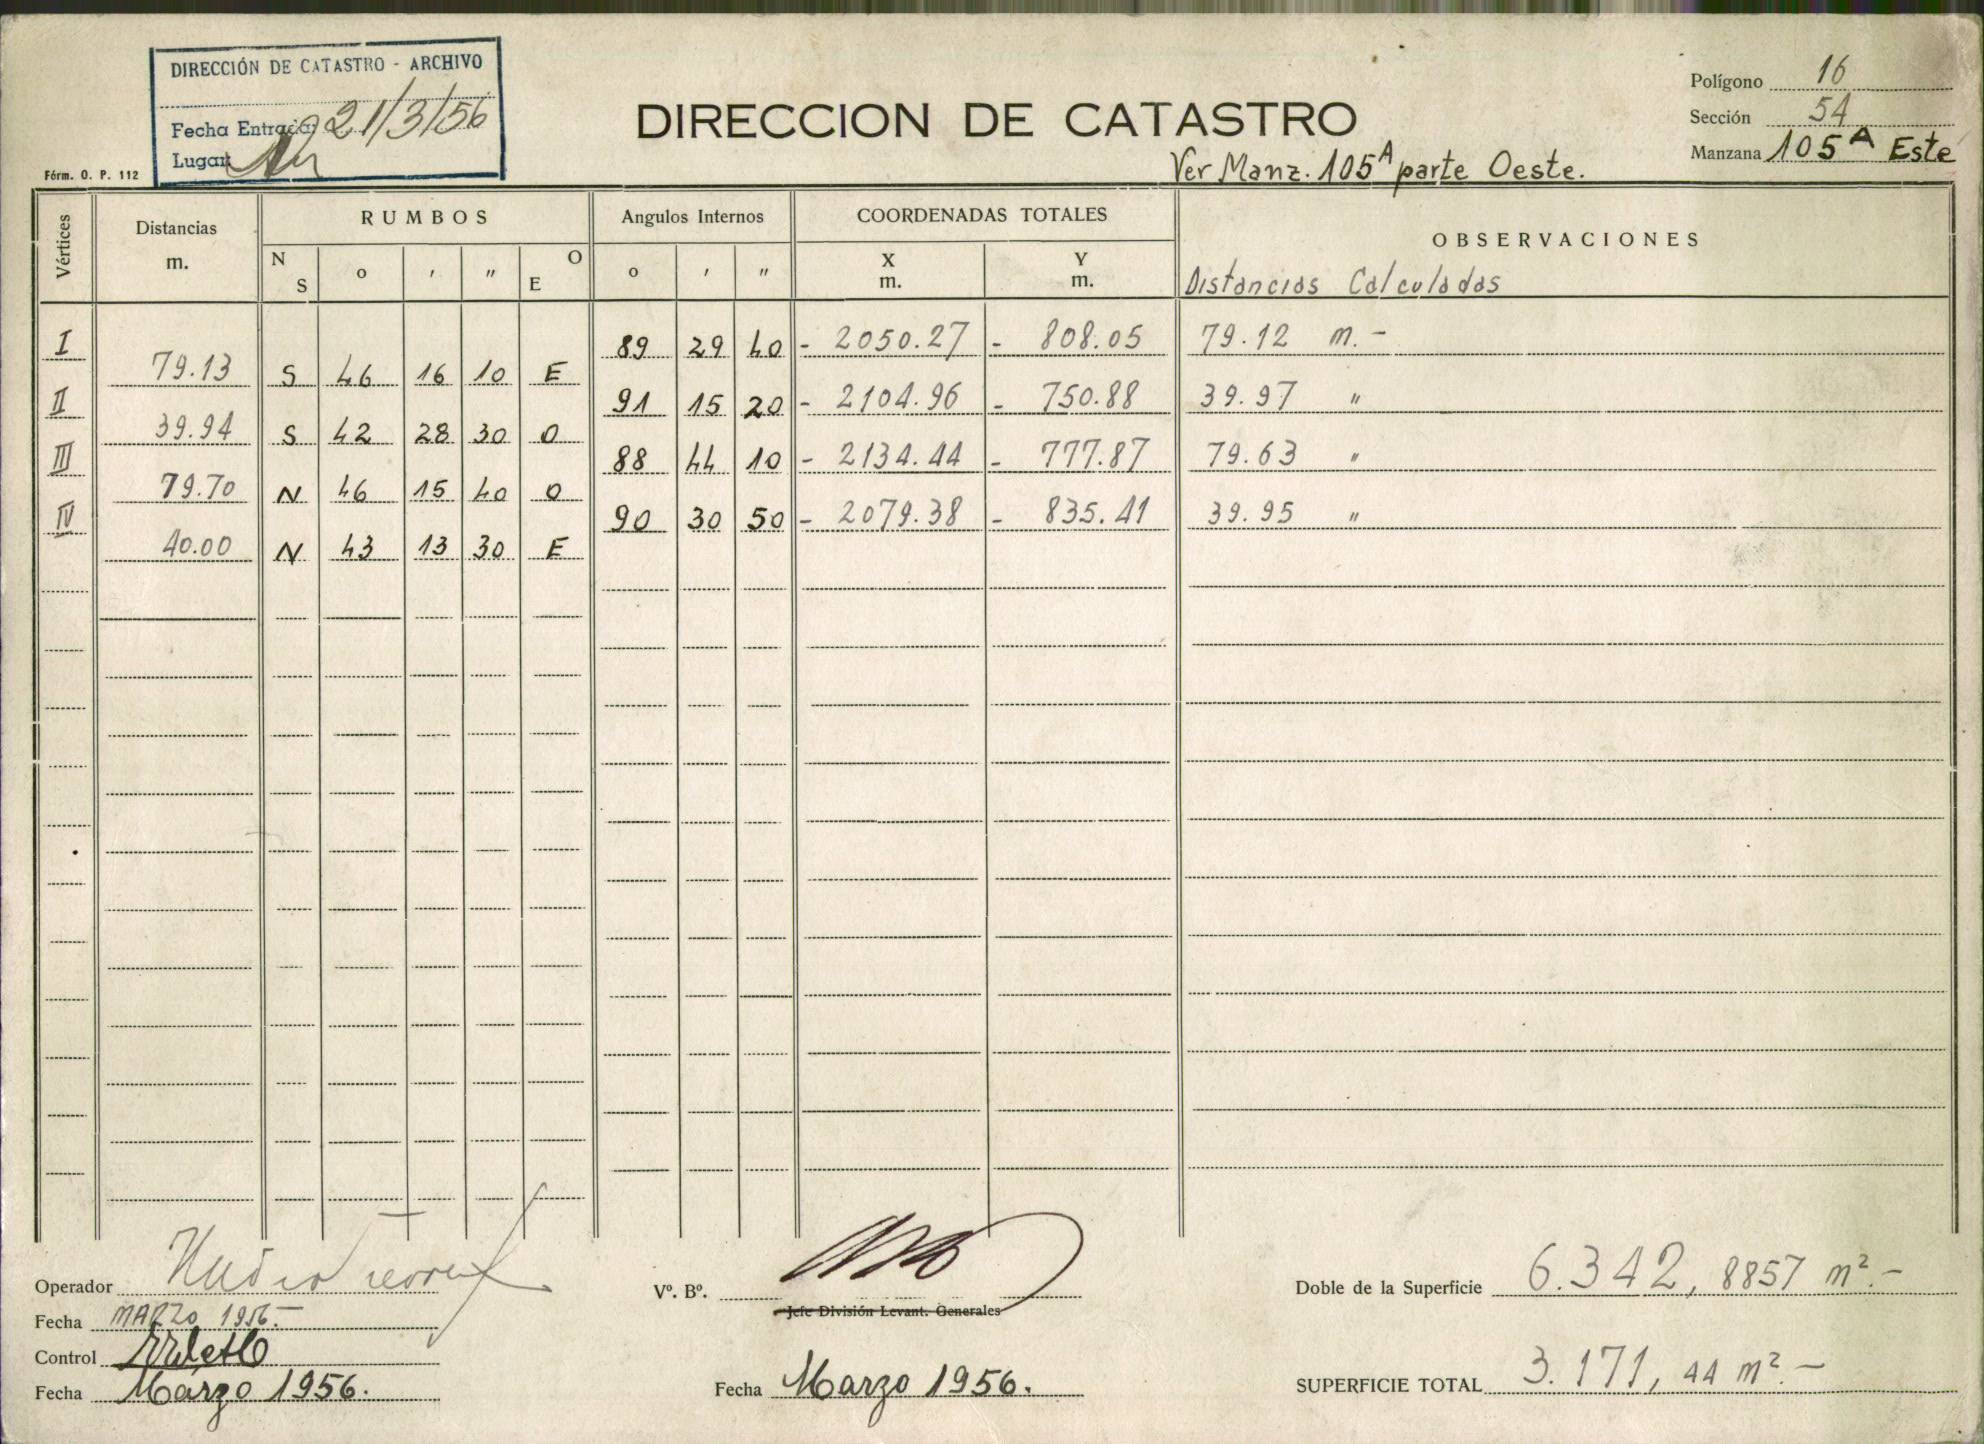 DIRECCIÓN DE CATASTRO - ARCHIVO
Fecha Entrada: 21/3/56
Lugar
Fórm. O. P. 112
DIRECCION DE CATASTRO
Ver Manz. 105A parte Oeste.
Polígono 16
Sección 54
Manzana 105A Este
Vértices Distancias m. RUMBOS Angulos Internos COORDENADAS TOTALES OBSERVACIONES
N S o ' " O E o ' " X m. Y m. Distancias Calculadas
I 89 29 40 - 2050.27 - 808.05 79.12 m.-
79.13 S 46 16 10 E
II 91 15 20 - 2104.96 - 750.88 39.97 "
39.94 S 42 28 30 O
III 88 44 10 - 2134.44 - 777.87 79.63 "
79.70 N 46 15 40 O
IV 90 30 50 - 2079.38 - 835.41 39.95 "
40.00 N 43 13 30 E
Operador
Fecha MARZO 1956.-
Control
Fecha Marzo 1956.
Vº. Bº.
Jefe División Levant. Generales
Fecha Marzo 1956.
Doble de la Superficie 6.342, 8857 m².-
SUPERFICIE TOTAL 3.171, 44 m².-